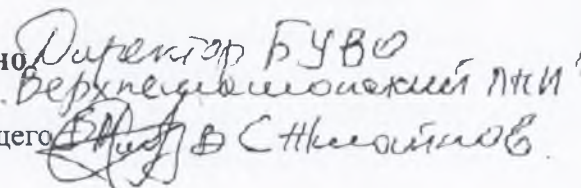 но Директор БУВО
Верхнемамонский ПНИ"
щего В С Жилатиков